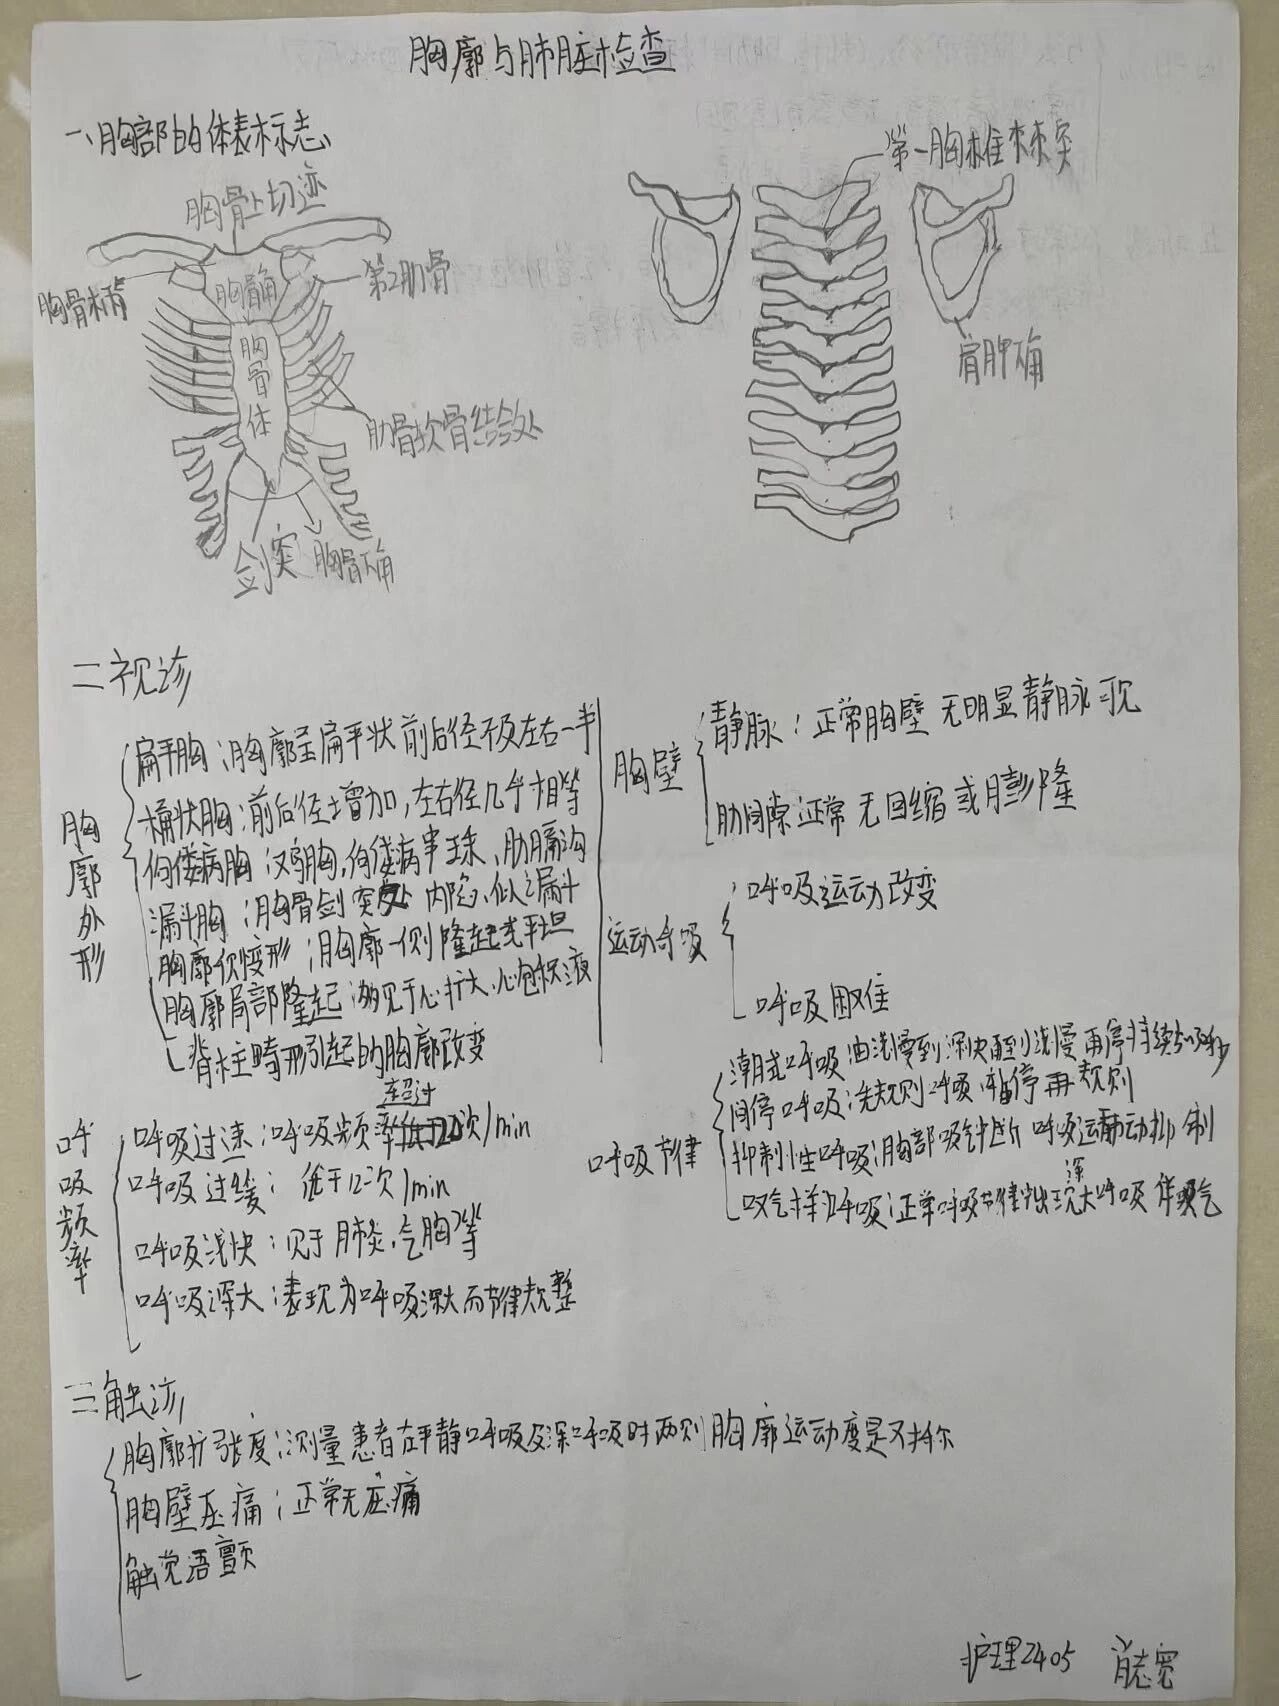 胸廓与肺脏检查
一、胸部的体表标志
胸骨上切迹
胸骨柄
胸骨角
第2肋骨
胸骨体
肋骨软骨结合处
剑突
胸骨下角
第一胸椎棘突
肩胛下角
二视诊
胸廓外形
扁平胸：胸廓呈扁平状 前后径不及左右一半
桶状胸：前后径增加，左右径几乎相等
佝偻病胸：鸡胸，佝偻病串珠、肋膈沟
漏斗胸：胸骨剑突处 内陷，似漏斗
胸廓侧变形：胸廓一侧隆起或平坦
胸廓局部隆起：多见于心扩大、心包积液
脊柱畸形引起的胸廓改变
胸壁
静脉：正常胸壁 无明显静脉可见
肋间隙：正常 无回缩或膨隆
运动呼吸
呼吸运动改变
呼吸困难
呼吸频率
呼吸过速：呼吸频率超过 次/min
呼吸过缓：低于12次/min
呼吸浅快：见于肺炎，气胸等
呼吸深大：表现为呼吸深大而节律规整
呼吸节律
潮式呼吸 由浅慢到深快再到浅慢再停持续
间停呼吸：先规则呼吸，暂停再规则
抑制性呼吸：胸部 呼吸运动抑制
叹气样呼吸：正常呼吸节律出现深大呼吸 伴叹气
三触诊
胸廓扩张度：测量患者在平静呼吸及深呼吸时两则胸廓运动度是对称
胸壁压痛：正常无压痛
触觉语颤
护理2405 肖志宽